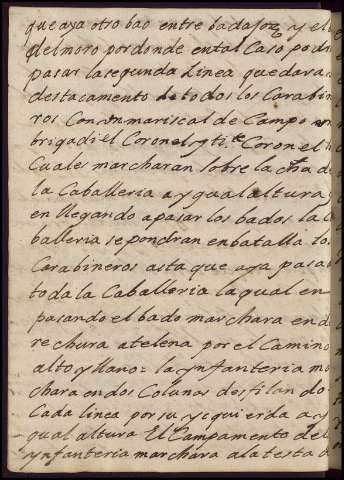 que aya otro bao entre badajoz y el
del moro por donde en tal Caso podr
pasar la segunda Linea quedara
destacamento de todos los Carabin
ros Con Un mariscal de Campo un
brigadi el Coronel y ti.te Coronel
Cuales marcharan sobre la dha de
la Caballeria a ygual altura y
en llegando a pasar los bados la Ca
balleria se pondran en batalla lo
Carabineros asta que aya pasa
toda la Caballeria la qual en
pasando el bado marchara en de
rechura a telena por el Camino
alto y llano = la ynfanteria ma
chara en dos Colunas desfilando
Cada linea por su yzquierda a y
gual altura El Campamento de
ynfanteria marchara a la testa d